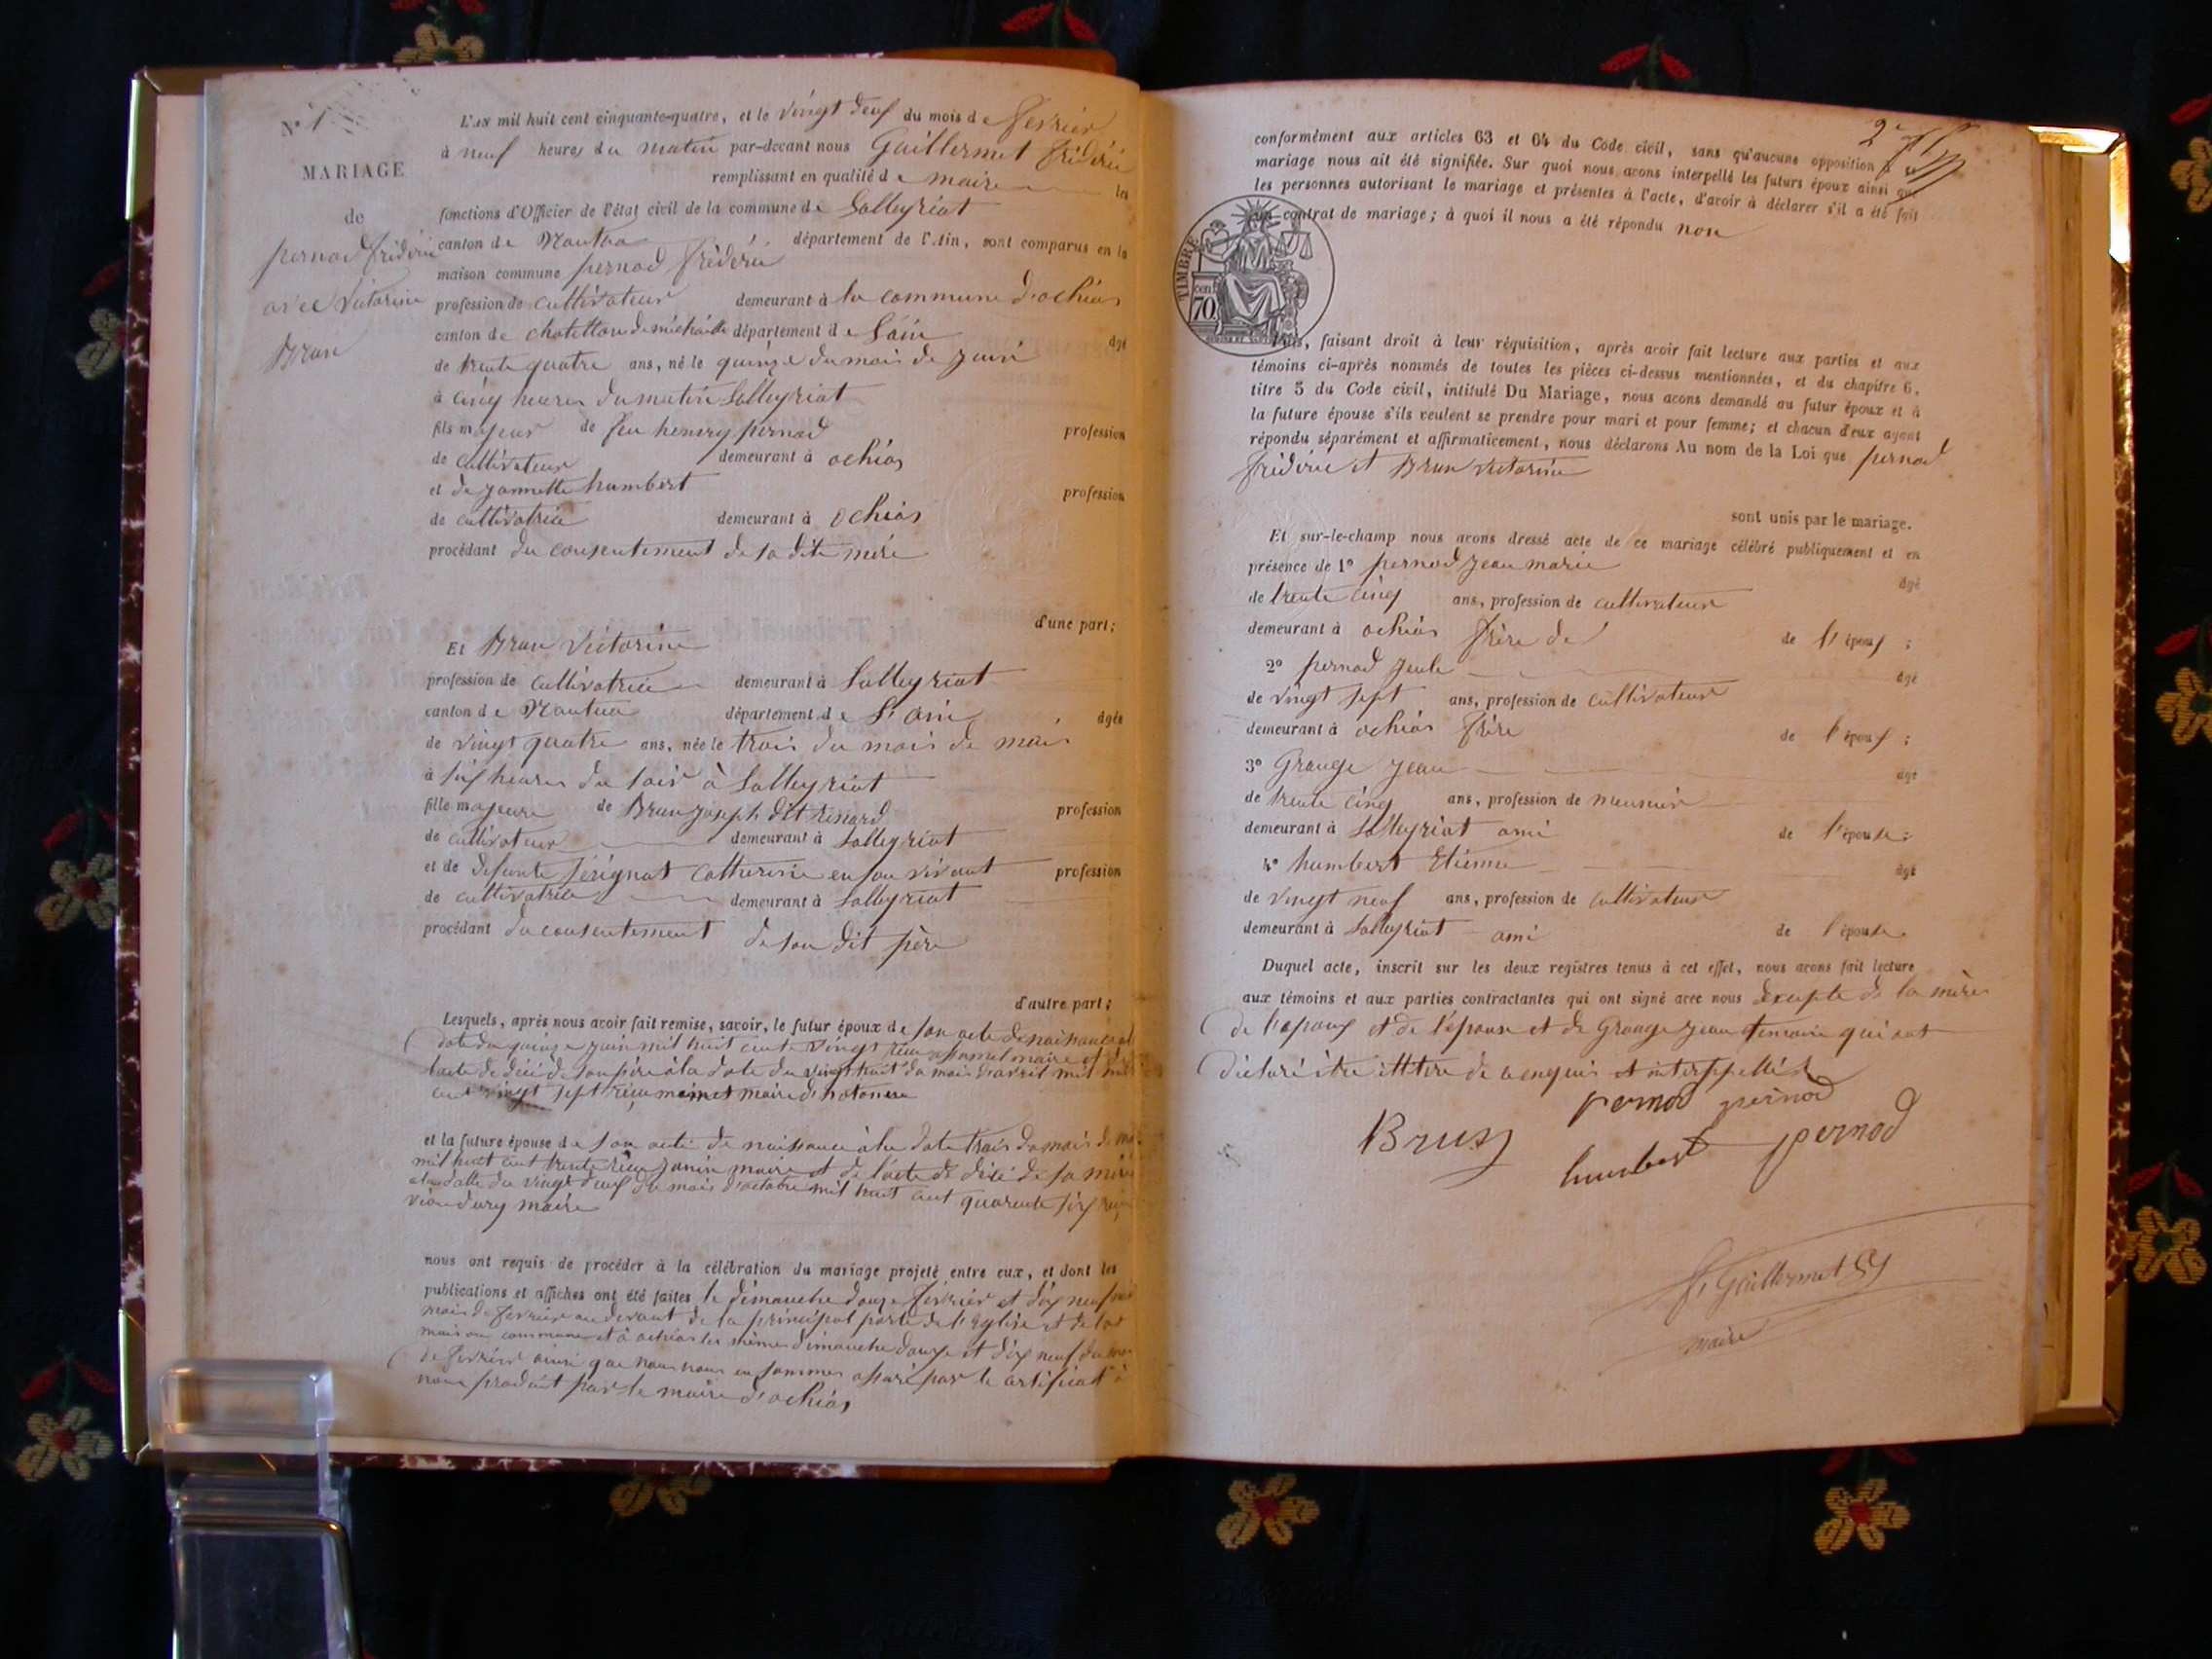 N° 1
MARIAGE
de
pernod frédéric
avec victorine
Brun
L'AN mil huit cent cinquante-quatre, et le vingt deux du mois de fevrier
à neuf heures du matin par-devant nous Guillermet frédéric
remplissant en qualité de maire les
fonctions d'Officier de l'état civil de la commune de Lalleyriat
canton de Nantua département de l'Ain, sont comparus en la
maison commune pernod frédéric
profession de cultivateur demeurant à la commune d'ochias
canton de chatillon de michaille département de L'ain âgé
de trente quatre ans, né le quinze du mois de juin
à cinq heures du matin Lalleyriat
fils majeur de feu henry pernod profession
de cultivateur demeurant à ochias
et de jannette humbert profession
de cultivatrice demeurant à ochias
procédant du consentement de sa dite mère
d'une part;
Et Brun victorine
profession de cultivatrice demeurant à Lalleyriat
canton de Nantua département de L'ain âgée
de vingt quatre ans, née le trois du mois de mai
à six heures du soir à Lalleyriat
fille majeure de Brun joseph dit renard profession
de cultivateur demeurant à Lalleyriat
et de defunte Sérignat catherine en son vivant profession
de cultivatrice demeurant à Lalleyriat
procédant du consentement de son dit père
d'autre part;
Lesquels, après nous avoir fait remise, savoir, le futur époux de son acte de naissance
date du quinze juin mil huit cent vingt maire et de
l'acte de décé de son père à la date du vingt huit du mois d'avril mil huit
cent vingt sept reçu maire
et la future épouse de son acte de naissance à la date trois du mois de mai
mil huit cent trente reçu janin maire et de l'acte de décé de sa mère
a la datte du vingt deux du mois d'octobre mil huit cent quarante six reçu
maire
nous ont requis de procéder à la célébration du mariage projeté entre eux, et dont les
publications et affiches ont été faites le dimanche douze fevrier et dix neuf
mois de fevrier au devant de la principal porte de l'église et de la
maison commune et à ochias les même dimanche douze et dix neuf du mois
de fevrier ainsi que nous nous en sommes assuré par le certificat à
nous produit par le maire d'ochias
2e
conformément aux articles 63 et 64 du Code civil, sans qu'aucune opposition à ce
mariage nous ait été signifiée. Sur quoi nous avons interpellé les futurs époux ainsi que
les personnes autorisant le mariage et présentes à l'acte, d'avoir à déclarer s'il a été fait
un contrat de mariage; à quoi il nous a été répondu non
TIMBRE
70
cen.
Puis, faisant droit à leur réquisition, après avoir fait lecture aux parties et aux
témoins ci-après nommés de toutes les pièces ci-dessus mentionnées, et du chapitre 6,
titre 5 du Code civil, intitulé Du Mariage, nous avons demandé au futur époux et à
la future épouse s'ils veulent se prendre pour mari et pour femme; et chacun d'eux ayant
répondu séparément et affirmativement, nous déclarons Au nom de la Loi que pernod
frédéric et Brun victorine
sont unis par le mariage.
Et sur-le-champ nous avons dressé acte de ce mariage célébré publiquement et en
présence de 1° pernod jean marie âgé
de trente cinq ans, profession de cultivateur
demeurant à ochias frère de de l'époux ;
2° pernod jule âgé
de vingt sept ans, profession de cultivateur
demeurant à ochias frère de l'époux ;
3° Grange jean âgé
de trente cinq ans, profession de meunier
demeurant à Lalleyriat ami de l'épouse ;
4° humbert Etienne âgé
de vingt neuf ans, profession de cultivateur
demeurant à Lalleyriat ami de l'épouse
Duquel acte, inscrit sur les deux registres tenus à cet effet, nous avons fait lecture
aux témoins et aux parties contractantes qui ont signé avec nous excepté de la mère
de l'epoux et de l'épouse et de Grange jean temoin qui ont
déclaré être de ce enquis et interpellés
pernod pernod
Brun humbert pernod
f. Guillermet
maire